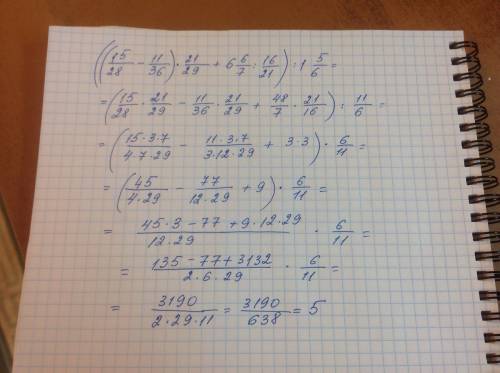 ((15/28 - 11/36) · 21/29 + 6 6/7 : 16/21) : 1 5/6 =
= (15/28 · 21/29 - 11/36 · 21/29 + 48/7 · 21/16) : 11/6 =
= (15·3·7/4·7·29 - 11·3·7/3·12·29 + 3·3) · 6/11 =
= (45/4·29 - 77/12·29 + 9) · 6/11 =
= 45·3-77+9·12·29/12·29 · 6/11 =
= 135-77+3132/2·6·29 · 6/11 =
= 3190/2·29·11 = 3190/638 = 5